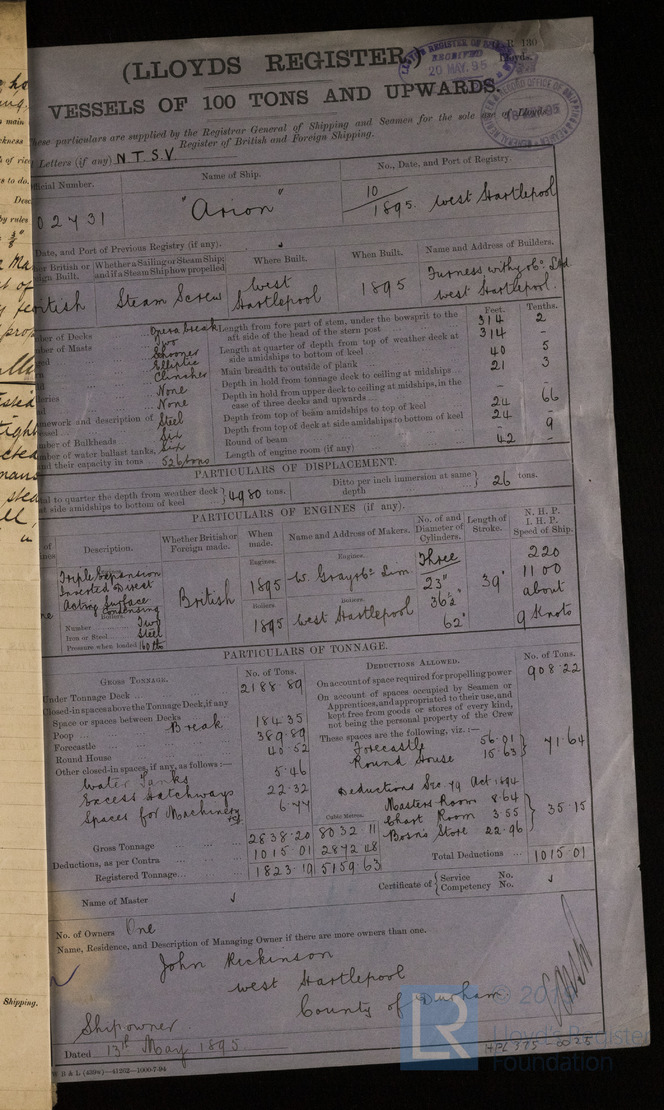 (LLOYDS REGISTER)
R. 130
Lloyds.
LLOYD'S REGISTER OF
RECEIVED
20 MAY. 95
VESSELS OF 100 TONS AND UPWARDS.
These particulars are supplied by the Registrar General of Shipping and Seamen for the sole use of Lloyds
Register of British and Foreign Shipping.
Letters (if any) N.T.S.V.
Official Number.
Name of Ship.
No., Date, and Port of Registry.
02431
"Arion"
10/1895. West Hartlepool
Date, and Port of Previous Registry (if any).
Whether a Sailing or Steam Ship; and if a Steam Ship how propelled
Where Built.
When Built.
Name and Address of Builders.
British
Steam Screw
West Hartlepool
1895
Furness Withy & Co. Ltd
West Hartlepool.
Feet. Tenths.
Number of Decks Two
Number of Masts
Schooner
Elliptic
Clincher
None
None
framework and description of
Steel
Number of Bulkheads Six
number of water ballast tanks, Six
and their capacity in tons 526 tons
Length from fore part of stem, under the bowsprit to the aft side of the head of the stern post 314 2
Length at quarter of depth from top of weather deck at side amidships to bottom of keel 314 -
Main breadth to outside of plank 40 5
Depth in hold from tonnage deck to ceiling at midships 21 3
Depth in hold from upper deck to ceiling at midships, in the case of three decks and upwards - -
Depth from top of beam amidships to top of keel 24 66
Depth from top of deck at side amidships to bottom of keel 24 -
Round of beam 9
Length of engine room (if any) 42 -
PARTICULARS OF DISPLACEMENT.
to quarter the depth from weather deck at side amidships to bottom of keel 4980 tons.
Ditto per inch immersion at same depth 26 tons.
PARTICULARS OF ENGINES (if any).
Description.
Whether British or Foreign made.
When made.
Name and Address of Makers.
No. of and Diameter of Cylinders.
Length of Stroke.
N. H. P.
I. H. P.
Speed of Ship.
Triple Expansion
Inverted Direct
Acting Surface
Condensing
Boilers.
Number Two
Iron or Steel Steel
Pressure when loaded 160 lbs
British
Engines.
1895
Boilers
1895
Engines.
W. Gray & Co. Lim
Boilers.
West Hartlepool
Three
23"
36½"
62"
39"
220
1100
about
9 Knots
PARTICULARS OF TONNAGE.
GROSS TONNAGE.
No. of Tons.
DEDUCTIONS ALLOWED.
No. of Tons.
Under Tonnage Deck 2188.89
Closed-in spaces above the Tonnage Deck, if any
Space or spaces between Decks
Break 184.35
Poop 389.89
Forecastle 40.52
Round House
Other closed-in spaces, if any, as follows:—
Water Tanks 5.46
Excess Hatchways 22.32
Spaces for Machinery &c 6.77
Gross Tonnage 2838.20
Deductions, as per Contra 1015.01
Registered Tonnage 1823.19
Cubic Metres.
8032.11
2872.48
5159.63
On account of space required for propelling power 908.22
On account of spaces occupied by Seamen or Apprentices, and appropriated to their use, and kept free from goods or stores of every kind, not being the personal property of the Crew
These spaces are the following, viz.:—
Forecastle 56.01
Round House 15.63
71.64
Deductions Sec. 79 Act 1894
Masters Room 8.64
Chart Room 3.55
Bosn's Store 22.96
35.15
Total Deductions 1015.01
Name of Master
Certificate of Service No.
Competency No.
No. of Owners One
Name, Residence, and Description of Managing Owner if there are more owners than one.
John Rickinson
West Hartlepool
County of Durham
Shipowner
Dated 13th May 1895
B & L (4394)—41262—1000-7-94
HPL375-0025
Shipping.
LR
Lloyd's Register
Foundation